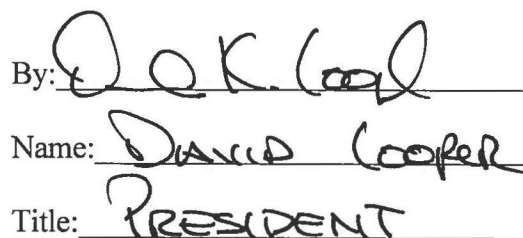 By: D K. Cool
Name: DAVID COOPER
Title: PRESIDENT